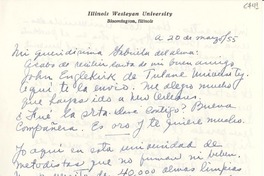 Illinois Wesleyan University
Bloomington, Illinois
a 20 de marzo/55
Mi queridísima Gabriela del alma:
Acabo de recibir carta de mi buen amigo
John Englekirk de Tulane University.
Aquí te la envío. Me alegro mucho
que hayas ido a New Orleans.
¿Fué la Orta-Ana contigo? Buena
Compañera. Es oro y te quiere mucho.
Yo aquí en esta universidad de
metodistas que no fuman ni beben.
de 40,000 almas limpias